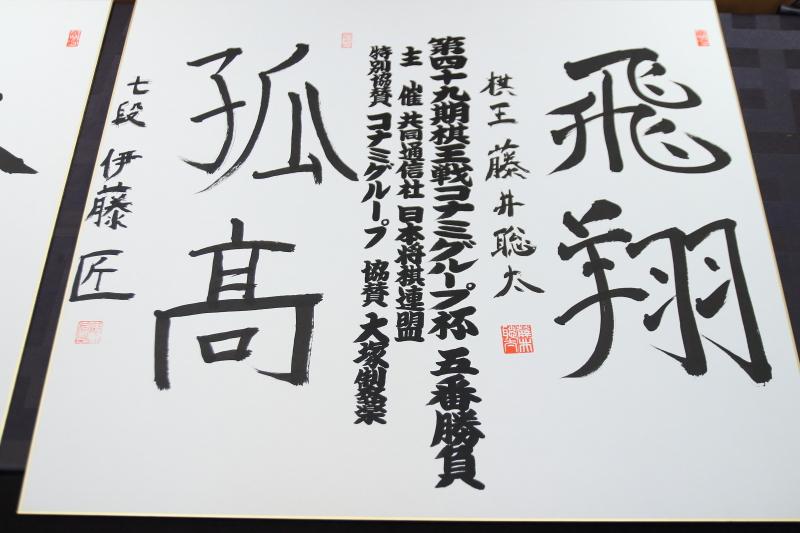 飛翔
棋王 藤井聡太
第四十九期棋王戦コナミグループ杯 五番勝負
主 催 共同通信社 日本将棋連盟
特別協賛 コナミグループ 協賛 大塚製薬
孤高
七段 伊藤 匠